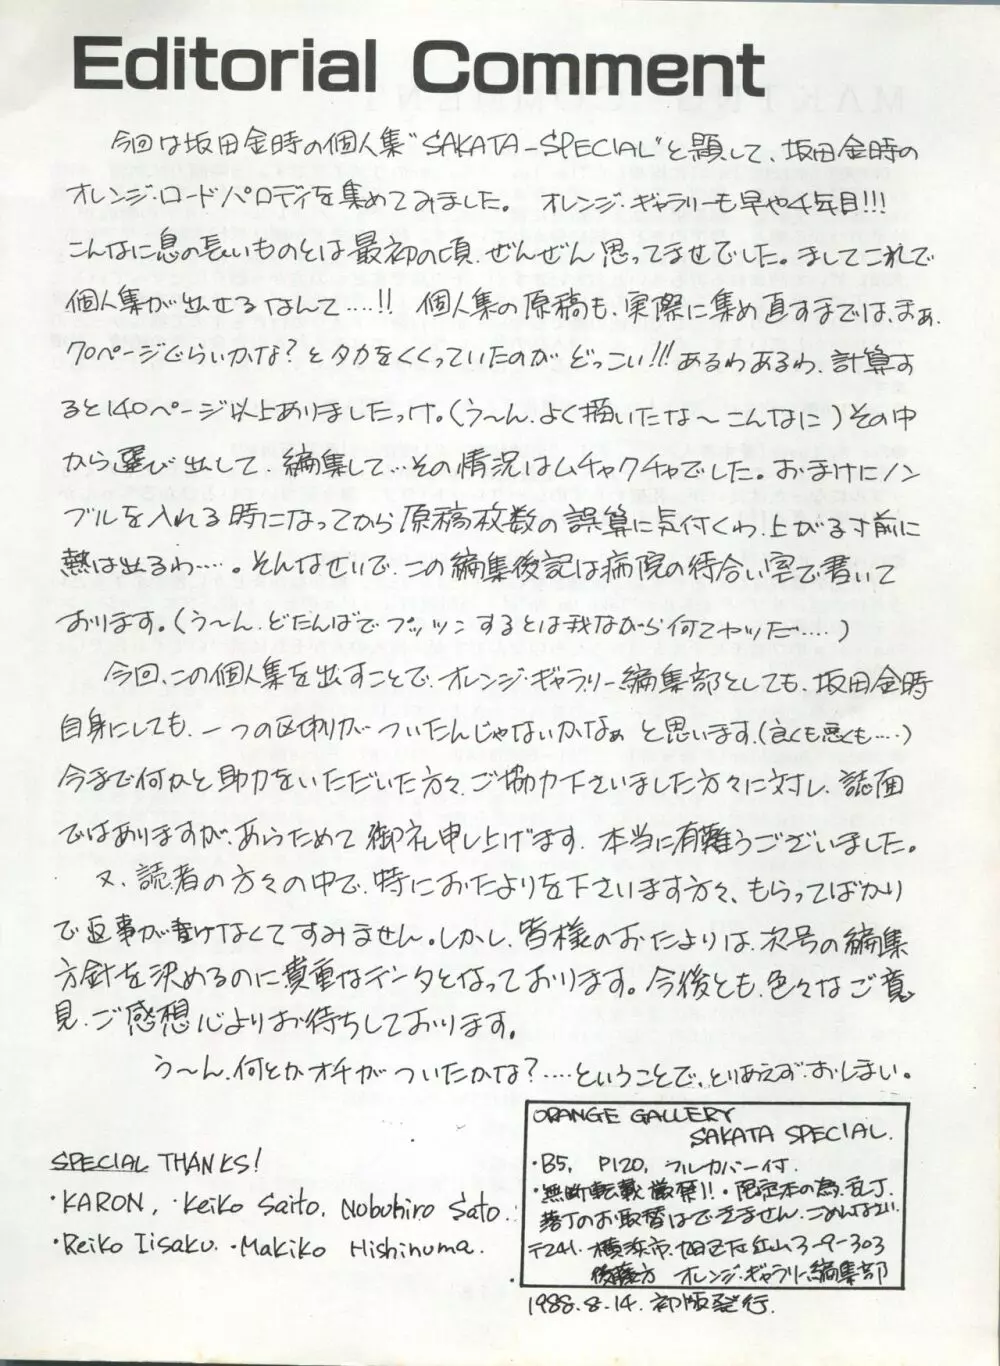 Editorial Comment
今回は坂田金時の個人集"SAKATA-SPECIAL"と題して、坂田金時の
オレンジ・ロードパロディを集めてみました。 オレンジ・ギャラリーも早や4年目!!!
こんなに息の長いものとは最初の頃、ぜんぜん思ってませでした。ましてこれで
個人集が出せるなんて……!! 個人集の原稿も、実際に集め直すまでは、まぁ、
70ページぐらいかな?とタカをくくっていたのがどっこい!!!あるわあるわ、計算す
ると140ページ以上ありましたっけ。(う〜ん、よく描いたな〜こんなに)その中
から選び出して、編集して…その情況はムチャクチャでした。おまけにノン
ブルを入れる時になってから原稿枚数の誤算に気付くわ、上がる寸前に
熱は出るわ……。そんなせいで、この編集後記は病院の待合い室で書いて
おります。(う〜ん、どたんばでプッツンするとは我ながら何てヤツだ……)
今回、この個人集を出すことで、オレンジ・ギャラリー編集部としても、坂田金時
自身にしても、一つの区切りがついたんじゃないかなぁと思います。(良くも悪くも……)
今まで何かと助力をいただいた方々、ご協力下さいました方々に対し、誌面
ではありますが、あらためて御礼申し上げます。本当に有難うございました。
又、読者の方々の中で、特におたよりを下さいます方々、もらってばかり
で返事が書けなくてすみません。しかし、皆様のおたよりは、次号の編集
方針を決めるのに貴重なデータとなっております。今後とも、色々なご意
見、ご感想心よりお待ちしております。
う〜ん、何とかオチがついたかな?……ということで、とりあえず、おしまい。
SPECIAL THANKS!
・KARON, ・Keiko Saito, Nobuhiro Sato.
・Reiko Iisaku. ・Makiko Hishinuma.
ORANGE GALLERY
SAKATA SPECIAL.
・B5, P120, フルカバー付.
・無断転載厳禁!!・限定本の為、乱丁、
落丁のお取替はできません。ごめんなさい.
〒241. 横浜市旭区左近山3-9-303
後藤方 オレンジ・ギャラリー編集部
1988.8.14. 初版発行.